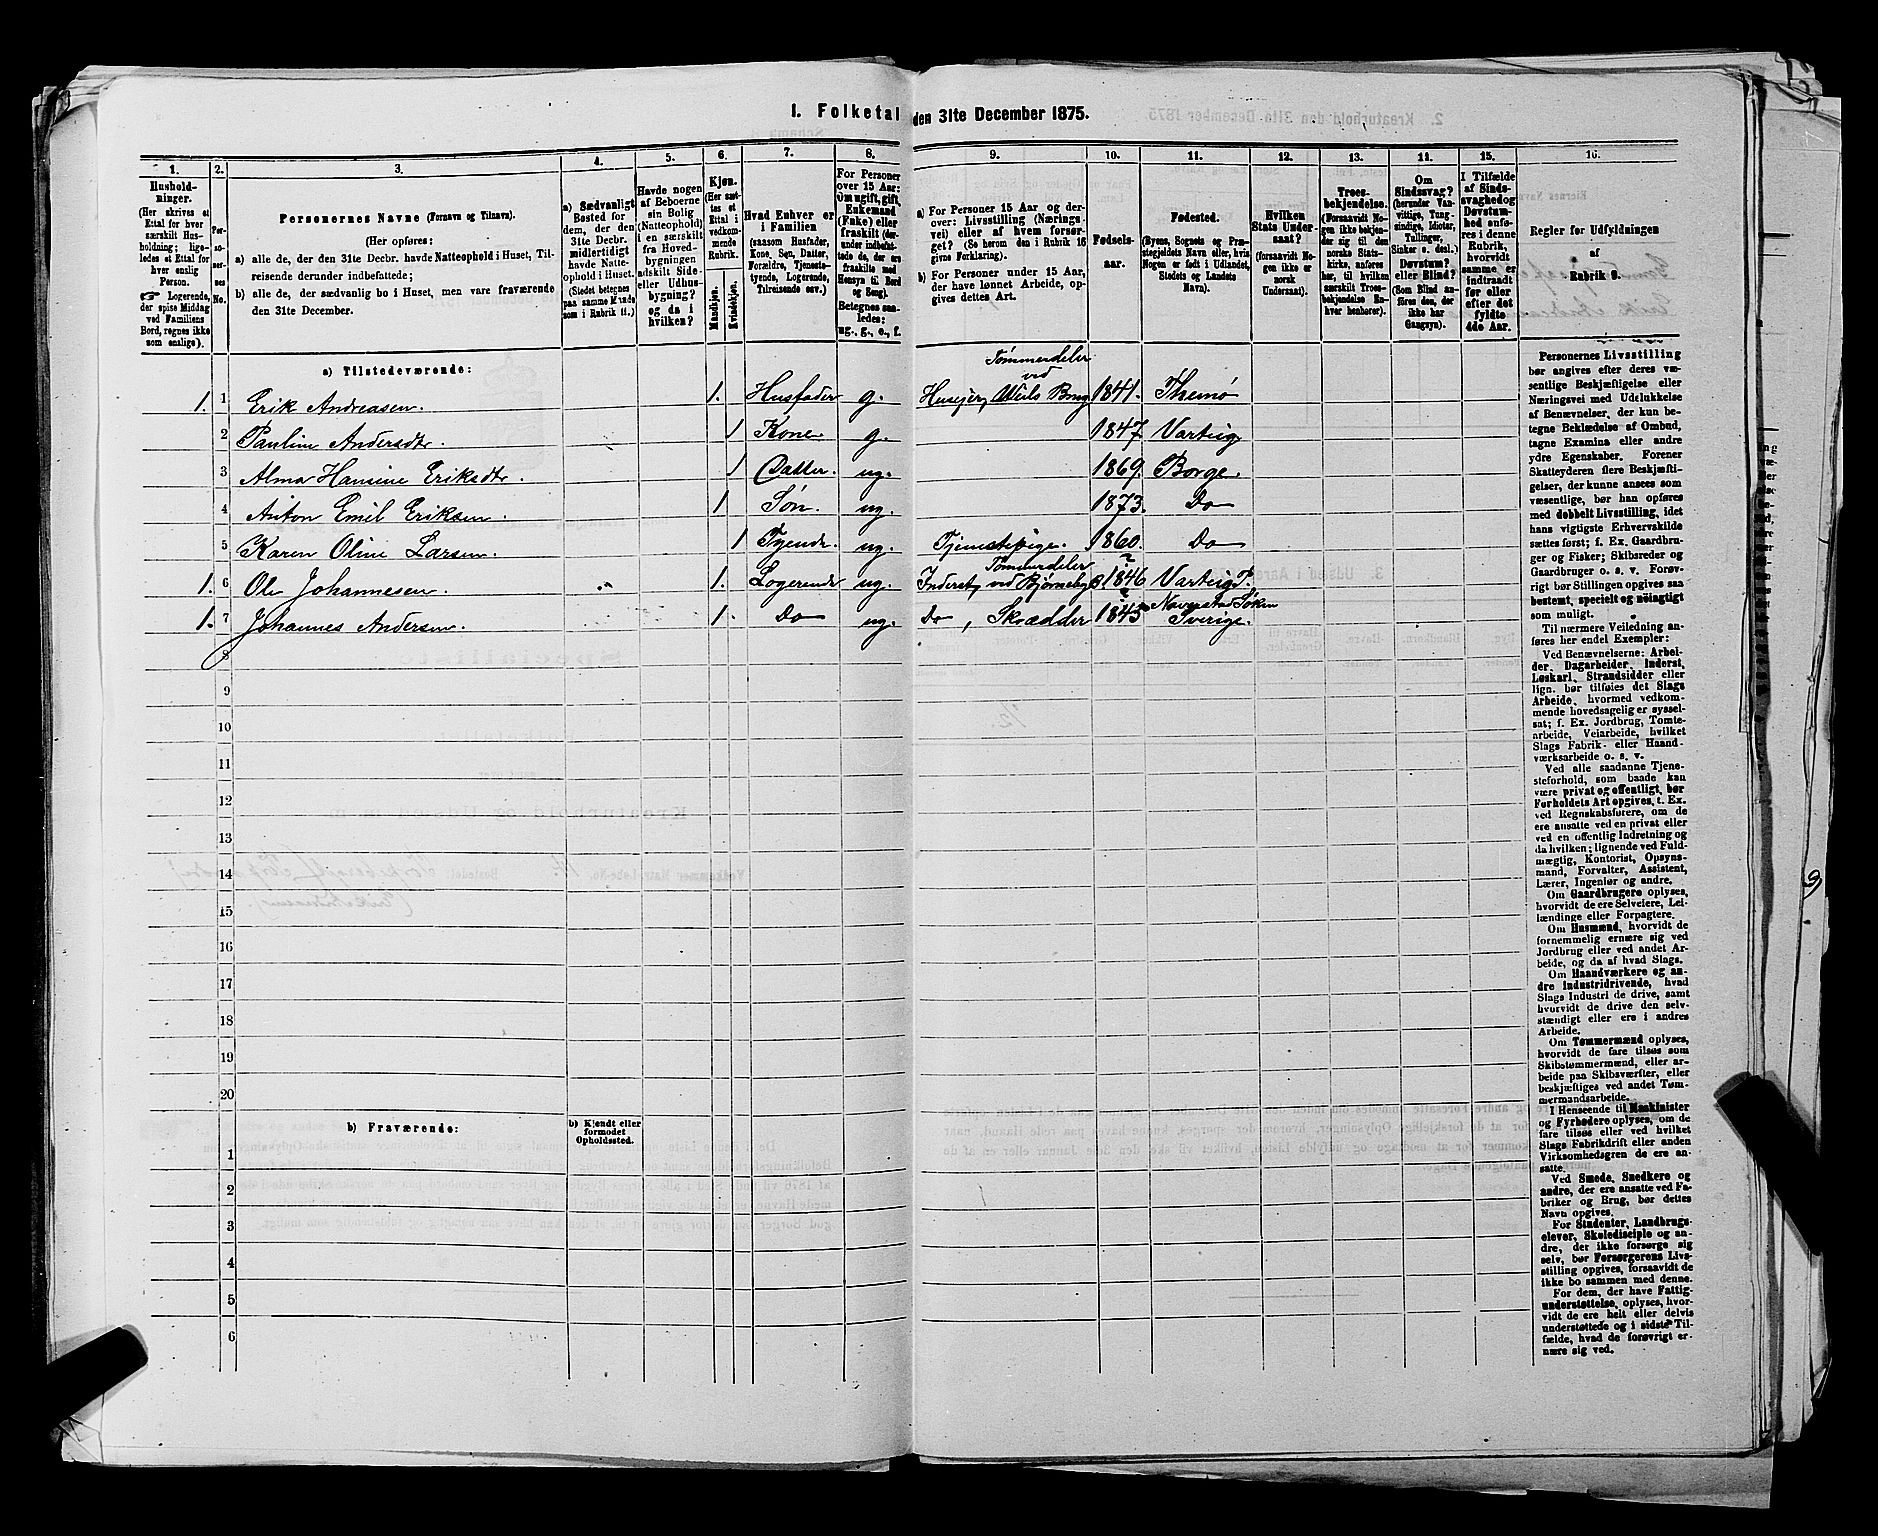 1. Folketal den 31te December 1875.
1. 2. 3. 4. 5. 6. 7. 8. 9. 10. 11. 12. 13. 14. 15. 16.
Hushold-
ninger.
(Her skrives et
Ettal for hver
særskilt Hus-
holdning; lige-
ledes et Ettal for
hver enslig
Person.
Logerende,
der spise Middag
ved Familiens
Bord, regnes ikke
som enslige).
Per-
so-
ner-
nes
No.
Personernes Navne (Fornavn og Tilnavn).
(Her opføres:
a) alle de, der den 31te Decbr. havde Natteophold i Huset, Til-
reisende derunder indbefattede;
b) alle de, der sædvanlig bo i Huset, men vare fraværende
den 31te December.
a) Sædvanligt
Bosted for
dem, der den
31te Decbr.
midlertidigt
havde Natte-
ophold i Huset.
(Stedet betegnes
paa samme Maade
som i Rubrik 11.)
Havde nogen
af Beboerne
sin Bolig
(Natteophold)
i en særskilt
fra Hoved-
bygningen
adskilt Side-
eller Udhus-
bygning?
og da i
hvilken?
Kjøn.
(Her sæt-
tes et
Ettal i
vedkom-
mende
Rubrik.
Mandkjøn.
Kvindekjøn.
Hvad Enhver er
i Familien
(saasom Husfader,
Kone, Søn, Datter,
Forældre, Tjeneste-
tyende, Logerende,
Tilreisende osv.)
For Personer
over 15 Aar:
Om ugift, gift,
Enkemand
(Enke) eller
fraskilt (her-
under indbefat-
tede de, der ere
fraskilte med
Hensyn til Bord
og Seng).
Betegnes saa-
ledes:
ug., g., e., f.
a) For Personer 15 Aar og der-
over: Livsstilling (Nærings-
vei) eller af hvem forsør-
get? (Se herom den i Rubrik 16
givne Forklaring).
b) For Personer under 15 Aar,
der have lønnet Arbeide, op-
gives dettes Art.
Fødsels-
aar.
Fødested.
(Byens, Sognets og Præ-
stegjeldets Navn eller, hvis
Nogen er født i Udlandet,
Stedets og Landets
Navn).
Hvilken
Stats Under-
saat?
(forsaavidt No-
gen ikke er
norsk
Undersaat).
Troes-
bekjendelse.
(Forsaavidt No-
gen ikke bekjen-
der sig til den
norske Stats-
kirke, anføres
her, til hvilken
særskilt Troes-
bekjendelse En-
hver henhører).
Om
Sindssvag?
(herunder Van-
vittige, Tung-
sindige, Idioter,
Tullinger,
Sinker o. desl.)
Døvstum?
eller Blind?
(Som Blind an-
føres den, der
ikke har
Gangsyn).
I Tilfælde
af Sinds-
svaghed og
Døvstum-
hed anfø-
res i denne
Rubrik,
hvorvidt
samme er
indtraadt
før eller
efter det
fyldte
4de Aar.
Regler for Udfyldningen
af
Rubrik 9.
a) Tilstedeværende:
1. 1 Erik Andreasen. 1. Husfader g. Huseier, Tømmerdeler ved Brug 1841. Themø
2 Pauline Andersdtr. 1 Kone g. 1847 Varteig
3 Alma Hansine Eriksdtr. 1 Datter. ug. 1869. Borge.
4 Anton Emil Eriksen. 1 Søn. ug. 1873. Do
5 Karen Oline Larsen. 1 Tyende. ug. Tjenestepige. 1860. Do
1. 6 Ole Johannesen. 1. Logerende ug. Inderst, Tømmerdeler ved 1846 Varteig P.
1. 7 Johannes Andersen. 1. Do ug. Do, Skrædder 1843 Naverstad Soken Sverige.
8
9
10
11
12
13
14
15
16
17
18
19
20
b) Fraværende:
b) Kjendt eller
formodet
Opholdssted.
1
2
3
4
5
6
Personernes Livsstilling
bør angives efter deres væ-
sentlige Beskjæftigelse eller
Næringsvei med Udelukkelse
af Benævnelser, der kun be-
tegne Beklædelse af Ombud,
tagne Examina eller andre
ydre Egenskaber. Forener
Skatteyderen flere Beskjæfti-
gelser, der kunne ansees som
væsentlige, bør han opføres
med dobbelt Livsstilling, idet
hans vigtigste Erhvervskilde
sættes først; f. Ex. Gaardbru-
ger og Fisker; Skibsreder og
Gaardbruger o. s. v. Forøv-
rigt bør Stillingen opgives saa
bestemt, specielt og nöiagtigt
som muligt.
Til nærmere Veiledning an-
føres her endel Exempler:
Ved Benævnelserne: Arbei-
der, Dagarbeider, Inderst,
Løskarl, Strandsidder eller
lign. bør tilføies det Slags
Arbeide, hvormed vedkom-
mende hovedsagelig er syssel-
sat; f. Ex. Jordbrug, Tomte-
arbeide, Veiarbeide, hvilket
Slags Fabrik- eller Haand-
værksarbeide o. s. v.
Ved alle saadanne Tjene-
steforhold, som baade kan
være privat og offentligt, bør
Forholdets Art opgives, t. Ex.
ved Regnskabsførere, om de
ere ansatte ved en privat eller
ved en offentlig Indretning og
da hvilken; lignende ved Fuld-
mægtig, Kontorist, Opsyns-
mand, Forvalter, Assistent,
Lærer, Ingeniør og andre.
Om Gaardbrugere oplyses,
hvorvidt de ere Selveiere, Lei-
lændinge eller Forpagtere.
Om Husmænd, hvorvidt de
fornemmelig ernære sig ved
Jordbrug eller ved andet Ar-
beide, og da af hvad Slags.
Om Haandværkere og an-
dre industridrivende, hvad
Slags Industri de drive, samt
hvorvidt de drive den selv-
stændigt eller ere i andres
Arbeide.
Om Tømmermænd oplyses,
hvorvidt de fare tilsøs som
Skibstømmermænd, eller ar-
beide paa Skibsværfter, eller
beskjæftiges ved andet Tøm-
mermandsarbeide.
I Henseende til Maskinister
og Fyrbødere oplyses, om de
fare tilsøs eller ved hvilket
Slags Fabrikdrift eller anden
Virksomhedsgren de ere an-
satte.
Ved Smede, Snedkere og
andre, der ere ansatte ved Fa-
briker og Brug, bør dettes
Navn opgives.
For Studenter, Landbrugs-
elever, Skoledisciple og an-
dre, der ikke forsørge sig
selv, bør Forsørgerens Livs-
stilling opgives, forsaavidt de
ikke bo sammen med denne.
For dem, der have Fattig-
understøttelse, oplyses, hvor-
vidt de ere helt eller delvis
understøttede og i sidste Til-
fælde, hvad de forøvrigt er-
nære sig ved.